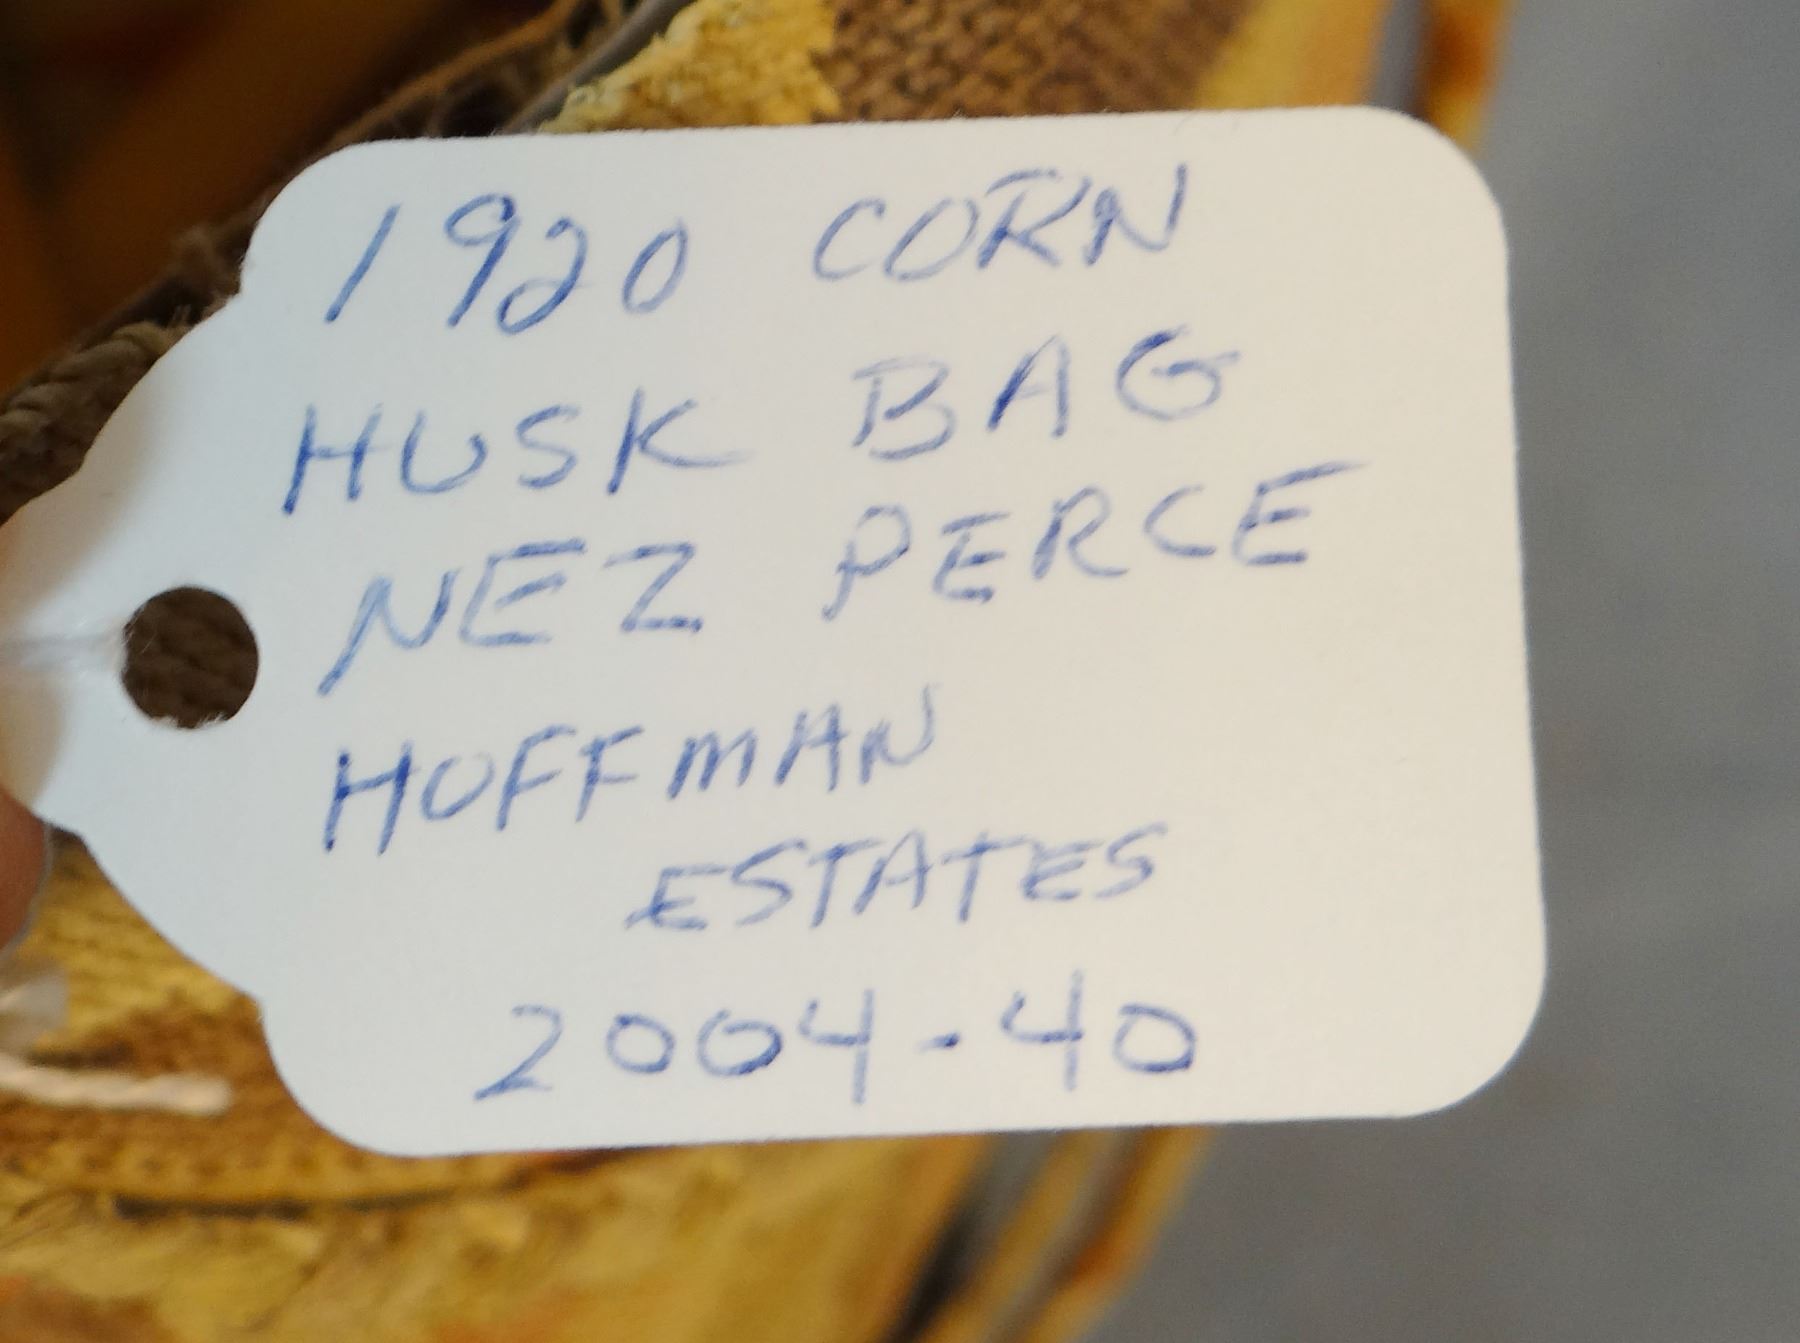 1920 CORN
HUSK BAG
NEZ PERCE
HOFFMAN
ESTATES
2004-40